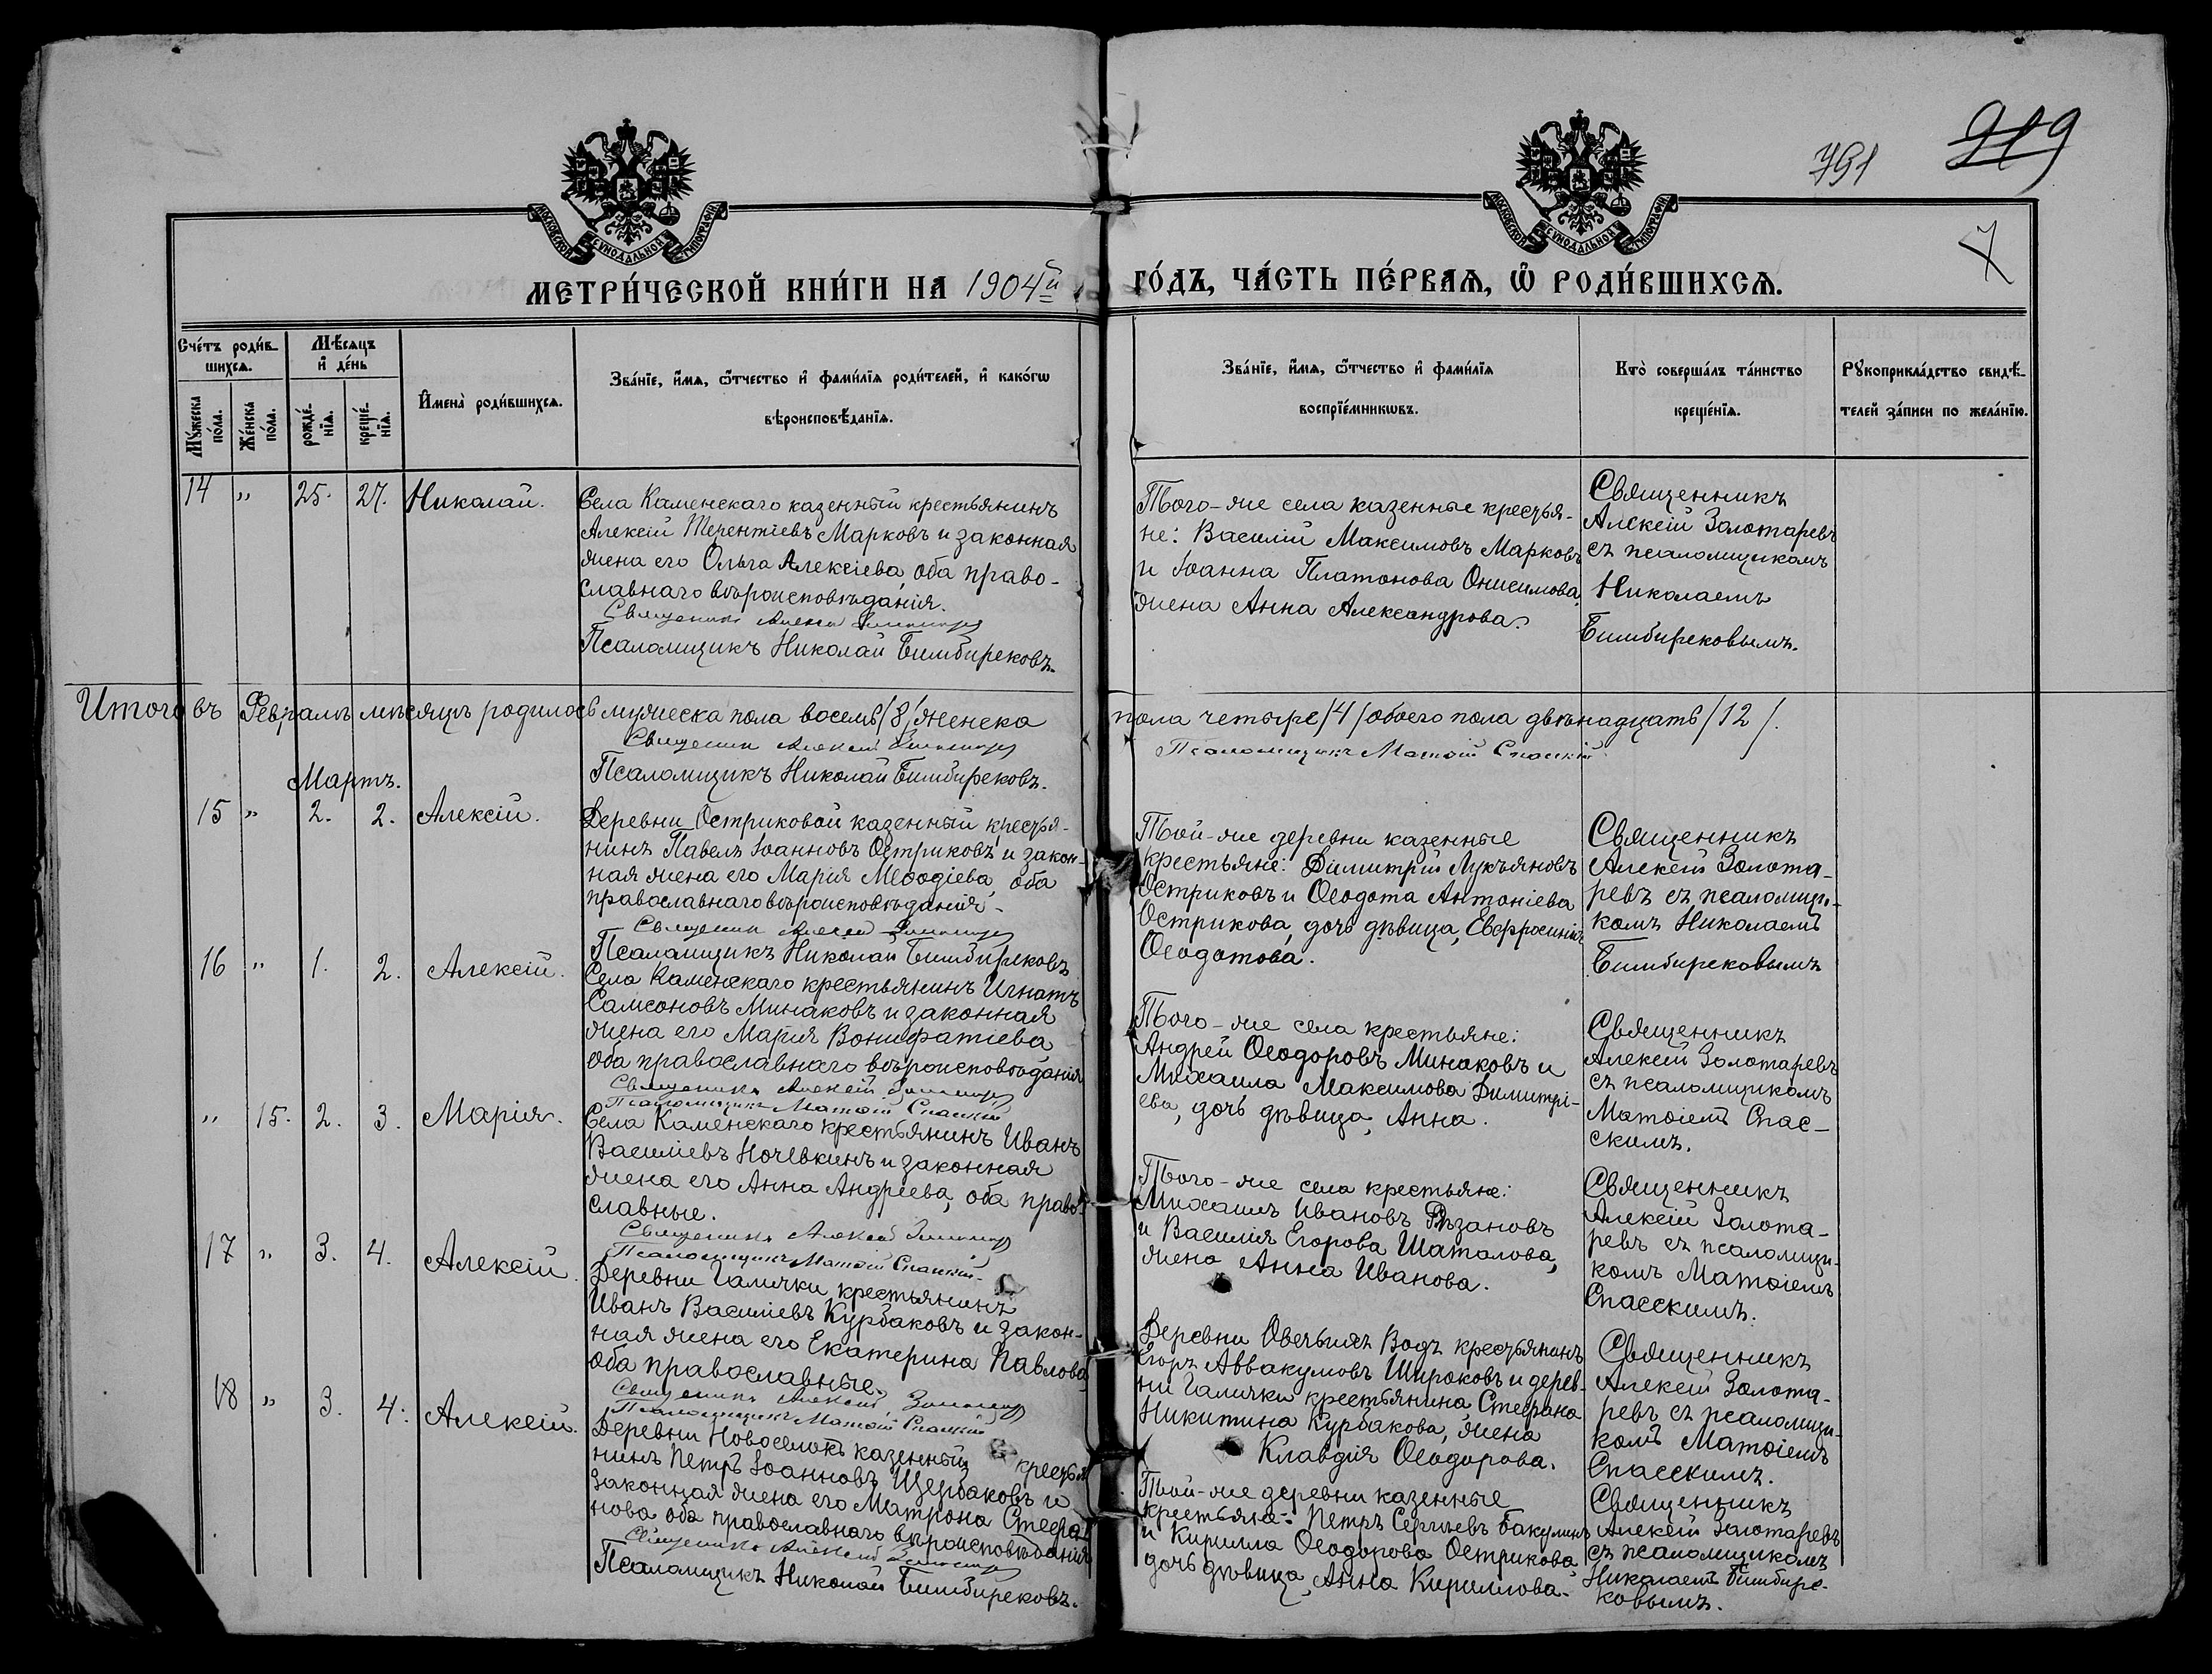 791
219
7
МОСКОВСКОЙ СѴНОДАЛЬНОЙ ТИПОГРАФІИ
МОСКОВСКОЙ СѴНОДАЛЬНОЙ ТИПОГРАФІИ
МЕТРИ́ЧЕСКОЙ КНИ́ГИ НА 1904й ГО́ДЪ, ЧА́СТЬ ПЕ́РВАѦ, Ѽ РОДИ́ВШИХСѦ.
Сче́тъ роди́в-
шихсѧ.
Мѣ́сѧцъ
и҆ де́нь
Мꙋ́жеска
по́ла.
Же́нска
по́ла.
рожде́-
нїѧ.
креще́-
нїѧ.
И҆мена̀ роди́вшихсѧ.
Зва́нїе, и҆́мѧ, ѻ҆́тчество и҆ фами́лїѧ роди́телей, и҆ како́гѡ
вѣроисповѣ́данїѧ.
Зва́нїе, и҆́мѧ, ѻ҆́тчество и҆ фами́лїѧ
воспрїе́мникѡвъ.
Кто̀ соверша́лъ та́инство
креще́нїѧ.
Рꙋкоприкла́дство свидѣ́-
телей за́писи по жела́нїю.
14 " 25. 27. Николай.
Села Каменскаго казенный крестьянинъ
Алексій Терентіевъ Марковъ и законная
жена его Ольга Алексіева, оба право-
славнаго вѣроисповѣданія.
Священникъ Алексій Золотаревъ
Псаломщикъ Николай Бимбирековъ.
Того-же села казенные крестья-
не: Василій Максимовъ Марковъ
и Іоанна Платонова Онисимова,
жена Анна Александрова.
Священникъ
Алексій Золотаревъ
съ псаломщикомъ
Николаемъ
Бимбирековымъ.
Итого въ Февралѣ мѣсяцѣ родилось мужеска пола восемь /8/ женска пола четыре /4/ обоего пола двѣнадцать /12/.
Священникъ Алексій Золотаревъ
Псаломщикъ Матѳій Спасскій
Псаломщикъ Николай Бимбирековъ.
Мартъ.
15 " 2. 2. Алексій.
Деревни Остриковой казенный крестья-
нинъ Павелъ Іоанновъ Остриковъ и закон-
ная жена его Марія Меѳодіева, оба
православнаго вѣроисповѣданія.
Священникъ Алексій Золотаревъ
Псаломщикъ Николай Бимбирековъ
Той-же деревни казенные
крестьяне: Димитрій Лукъяновъ
Остриковъ и Ѳеодота Антоніева
Острикова, дочь дѣвица, Евфросинія
Ѳеодотова.
Священникъ
Алексій Золота-
ревъ съ псаломщи-
комъ Николаемъ
Бимбирековымъ
16 " 1. 2. Алексій.
Села Каменскаго крестьянинъ Игнатъ
Самсоновъ Минаковъ и законная
жена его Марія Вонифатіева
оба православнаго вѣроисповѣданія
Священникъ Алексій Золотаревъ
Псаломщикъ Матѳій Спасскій
Того-же села крестьяне:
Андрей Ѳеодоровъ Минаковъ и
Михаила Максимова Димитрі-
ева, дочь дѣвица, Анна.
Священникъ
Алексій Золотаревъ
съ псаломщикомъ
Матѳіемъ Спас-
скимъ.
" 15. 2. 3. Марія.
Села Каменскаго крестьянинъ Иванъ
Василіевъ Ночевкинъ и законная
жена его Анна Андреева, оба право-
славные.
Священникъ Алексій Золотаревъ
Псаломщикъ Матѳій Спасскій.
Того-же села крестьяне:
Михаилъ Ивановъ Рѣзановъ
и Василія Егорова Шаталова,
жена Анна Иванова.
Священникъ
Алексій Золота-
ревъ съ псаломщи-
комъ Матѳіемъ
Спасскимъ.
17 " 3. 4. Алексій.
Деревни Галички, крестьянинъ
Иванъ Василіевъ Курбаковъ и закон-
ная жена его Екатерина Павлова,
оба православные.
Священникъ Алексій Золотаревъ
Псаломщикъ Матѳій Спасскій
Деревни Овечьихъ Водъ крестьянинъ
Егоръ Аввакумовъ Широковъ и дерев-
ни Галички крестьянина Стефана
Никитина Курбакова, жена
Клавдія Ѳеодорова.
Священникъ
Алексій Золота-
ревъ съ псаломщи-
комъ Матѳіемъ
Спасскимъ.
18 " 3. 4. Алексій.
Деревни Новоселокъ казенный крестья-
нинъ Петръ Іоанновъ Щербаковъ и
законная жена его Матрона Стефа-
нова оба православнаго вѣроисповѣданія
Священникъ Алексій Золотаревъ
Псаломщикъ Николай Бимбирековъ.
Той-же деревни казенные
крестьяне: Петръ Сергіевъ Бакулинъ
и Кирилла Ѳеодорова Острикова
дочь дѣвица, Анна Кириллова.
Священникъ
Алексій Золотаревъ
съ псаломщикомъ
Николаемъ Бимбире-
ковымъ.